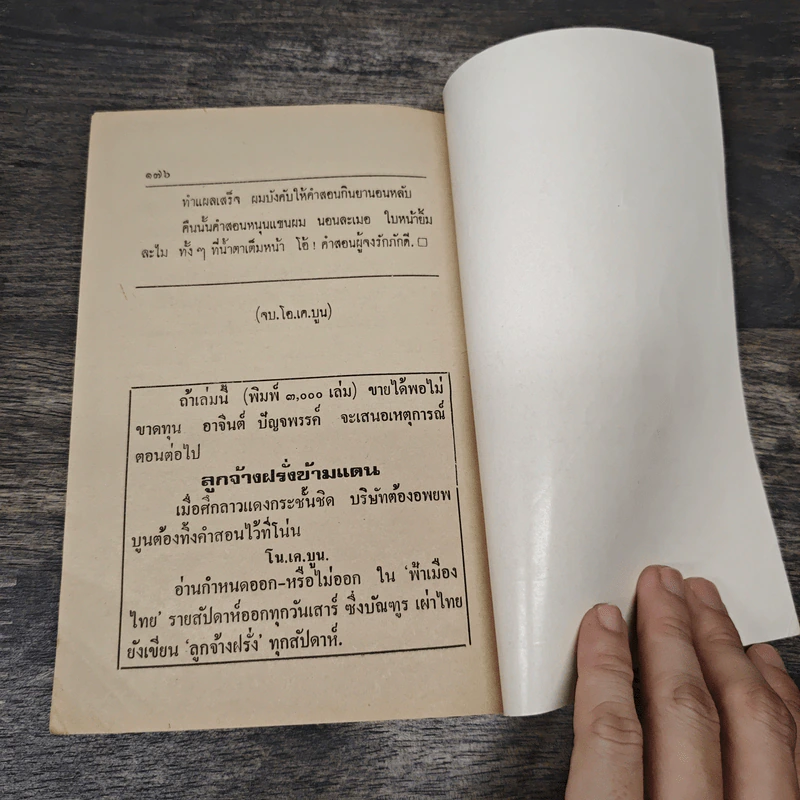 ๑๗๖
ทำแผลเสร็จ ผมบังคับให้คำสอนกินยานอนหลับ
คืนนั้นคำสอนหนุนแขนผม นอนละเมอ ใบหน้ายิ้ม
ละไม ทั้ง ๆ ที่น้ำตาเต็มหน้า โอ้ ! คำสอนผู้จงรักภักดี. □
(จบ.โอ.เค.บูน)
ถ้าเล่มนี้ (พิมพ์ ๓,๐๐๐ เล่ม) ขายได้พอไม่
ขาดทุน อาจินต์ ปัญจพรรค์ จะเสนอเหตุการณ์
ตอนต่อไป
ลูกจ้างฝรั่งข้ามแดน
เมื่อศึกลาวแดงกระชั้นชิด บริษัทต้องอพยพ
บูนต้องทิ้งคำสอนไว้ที่โน่น
โน.เค.บูน.
อ่านกำหนดออก-หรือไม่ออก ใน 'ฟ้าเมือง
ไทย' รายสัปดาห์ออกทุกวันเสาร์ ซึ่งบัณฑูร เผ่าไทย
ยังเขียน 'ลูกจ้างฝรั่ง' ทุกสัปดาห์.